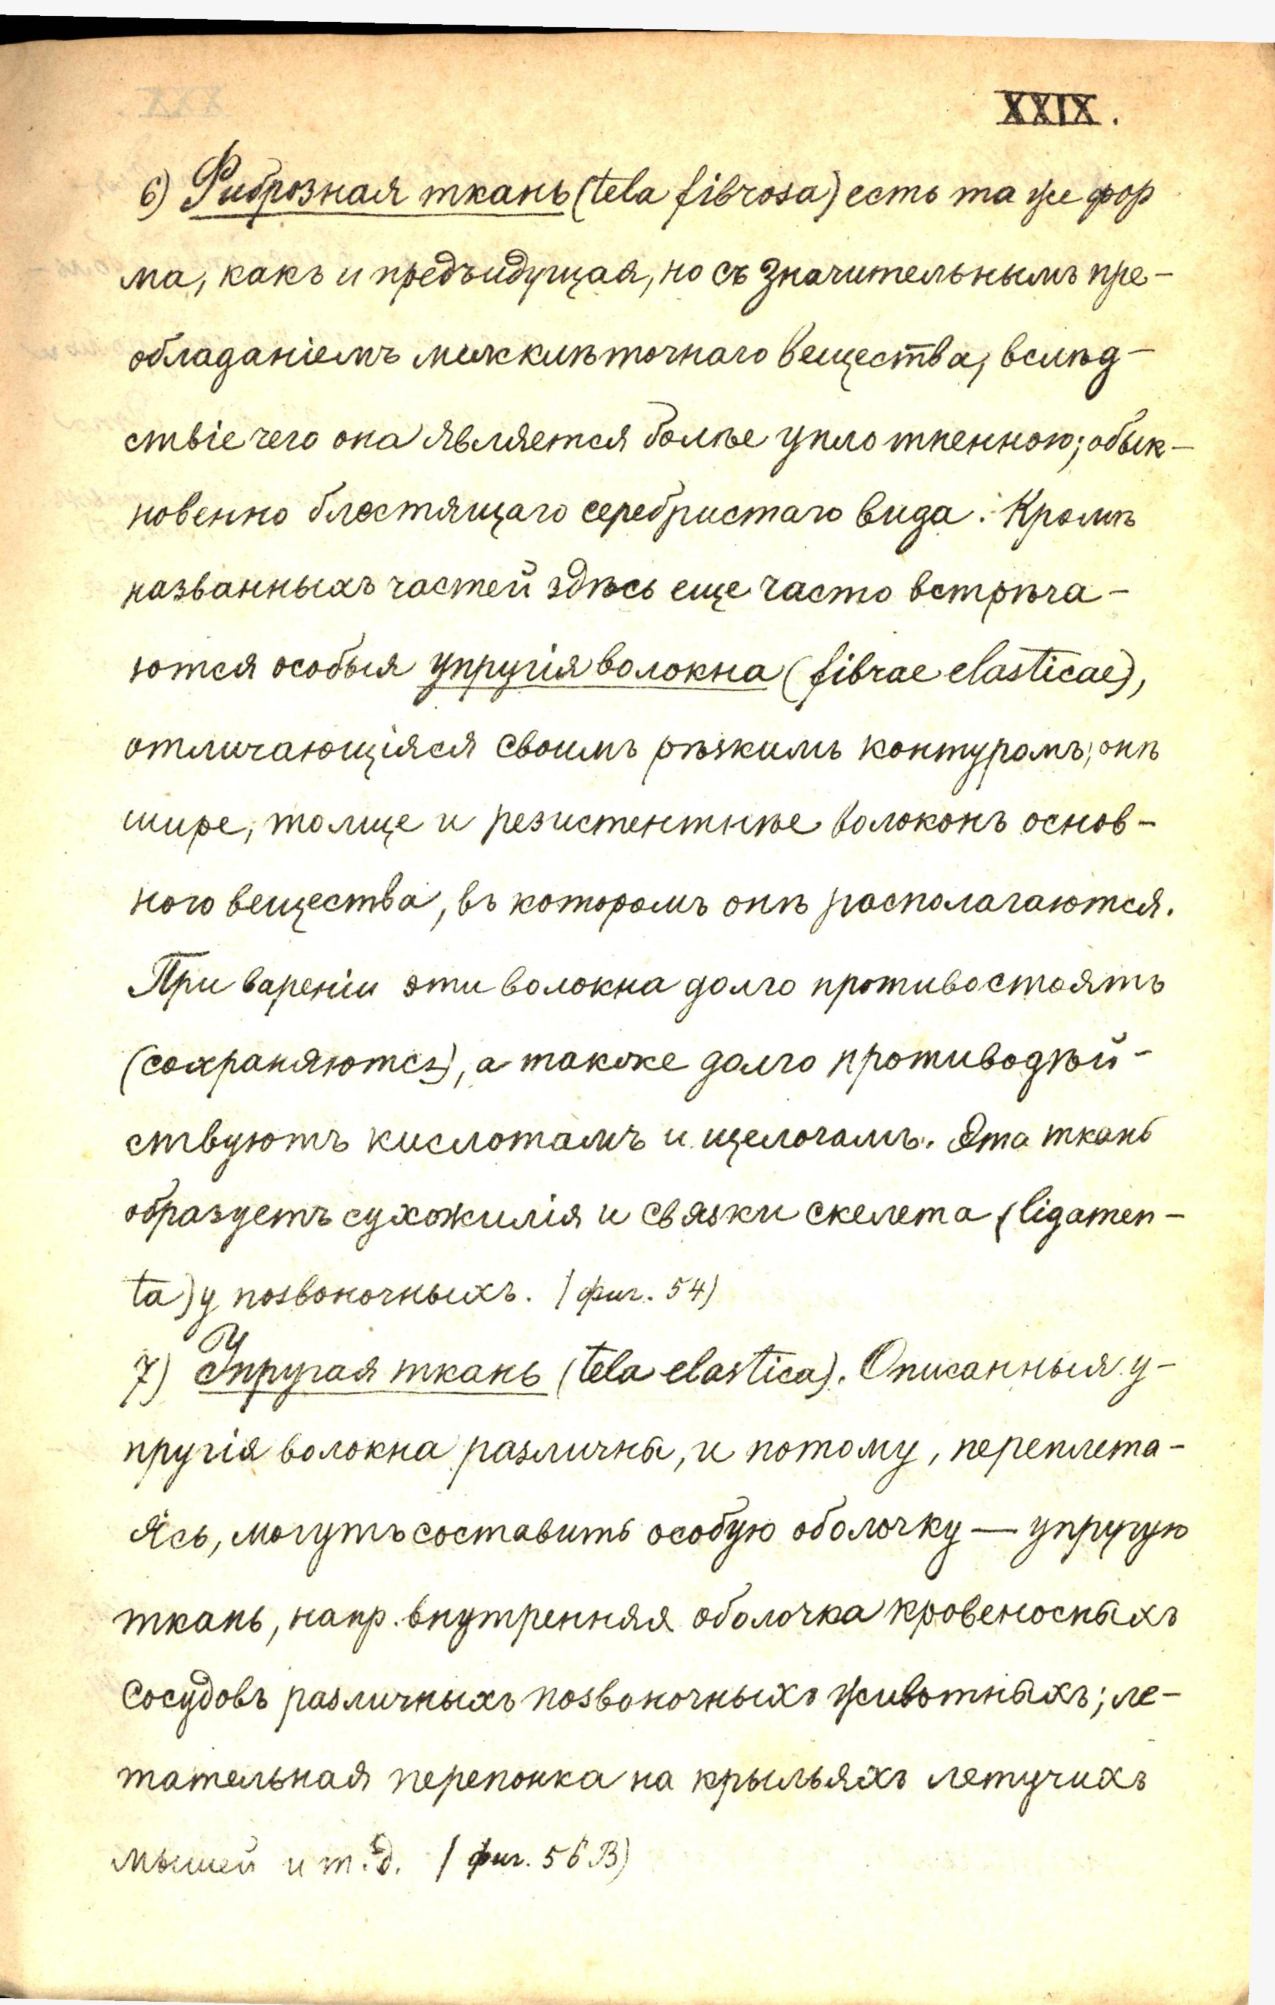 XXIX.
6) Фиброзная ткань (tela fibrosa) есть та же фор
ма, какъ и предъидущая, но съ значительнымъ пре-
обладаніемъ межклѣточнаго вещества, вслѣд-
ствіе чего она является болѣе уплотненною; обык-
новенно блестящаго серебристаго вида. Кромѣ
названныхъ частей здѣсь еще часто встрѣча-
ются особыя упругія волокна (fibrae elasticae),
отличающіяся своимъ рѣзкимъ контуромъ; онѣ
шире, толще и резистентнѣе волоконъ основ-
ного вещества, въ которомъ онѣ располагаются.
При вареніи эти волокна долго противостоятъ
(сохраняются), а также долго противодѣй-
ствуютъ кислотамъ и щелочамъ. Эта ткань
образуетъ сухожилія и связки скелета (ligamen-
ta) у позвоночныхъ. (фиг. 54)
7) Упругая ткань (tela elastica). Описанныя у-
пругія волокна различны, и потому, переплета-
ясь, могутъ составить особую оболочку — упругую
ткань, напр. внутренняя оболочка кровеносныхъ
сосудовъ различныхъ позвоночныхъ животныхъ; ле-
тательная перепонка на крыльяхъ летучихъ
мышей и т. д. (фиг. 56 В)